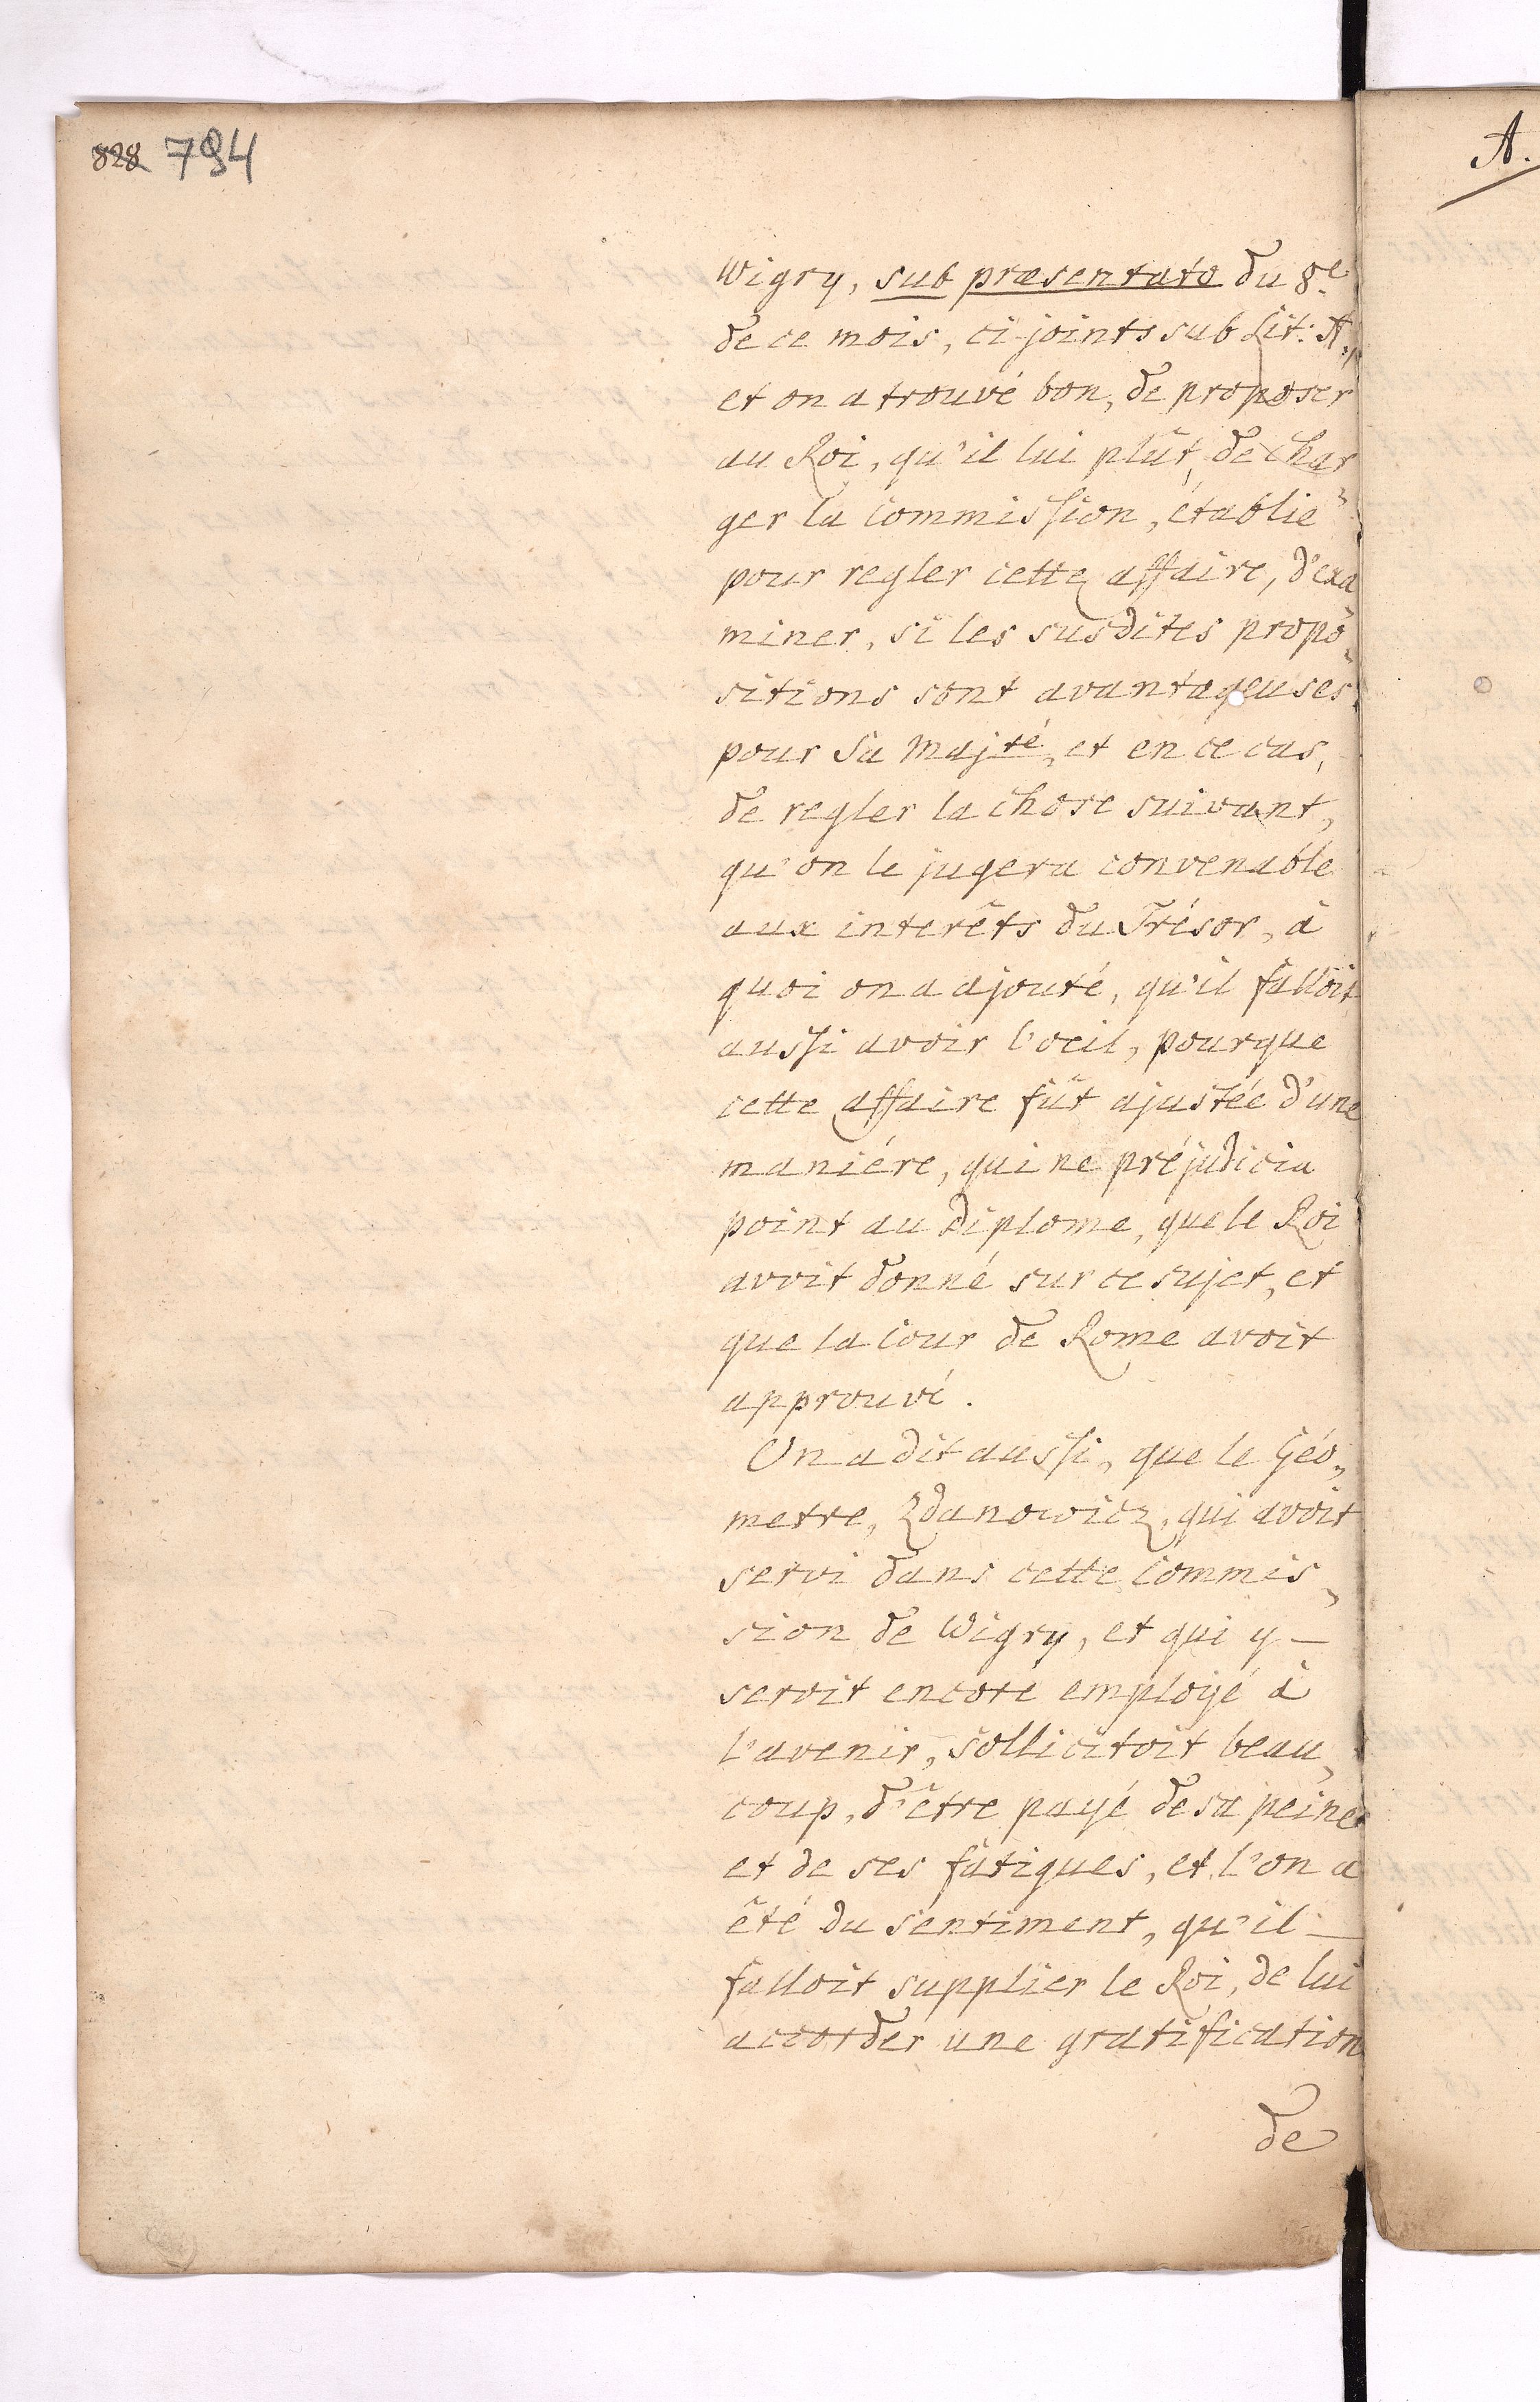 828 794
A.
Wigry, sub præsentato du 8.e
de ce mois, ci-joints sub Lit: A,,
et on a trouvé bon, de proposer
au Roi, qu'il lui plût, de char
ger la Commission, établie
pour regler cette affaire, d'exa
miner, si les susdites propo„
sitions sont avantageuses
pour Sa Majté, et en ce cas,
de regler la chose suivant,
qu'on le jugera convenable
aux interêts du Trésor, à
quoi on a ajouté, qu'il falloit
aussi avoir l'oeil, pourque
cette affaire fût ajustée d'une
maniére, qui ne préjudicia
point au Diplome, que le Roi
avoit donné sur ce sujet, et
que la Cour de Rome avoit
approuvé.
On a dit aussi, que le Géo„
metre, Zdanowicz, qui avoit
servi dans cette Commis„
sion de Wigry, et qui y —
seroit encore employé à
l'avenir, sollicitoit beau„
coup, d'être payé de sa peine
et de ses fatiques, et l'on a
êté du sentiment, qu'il —
falloit supplier le Roi, de lui
accorder une gratification
de